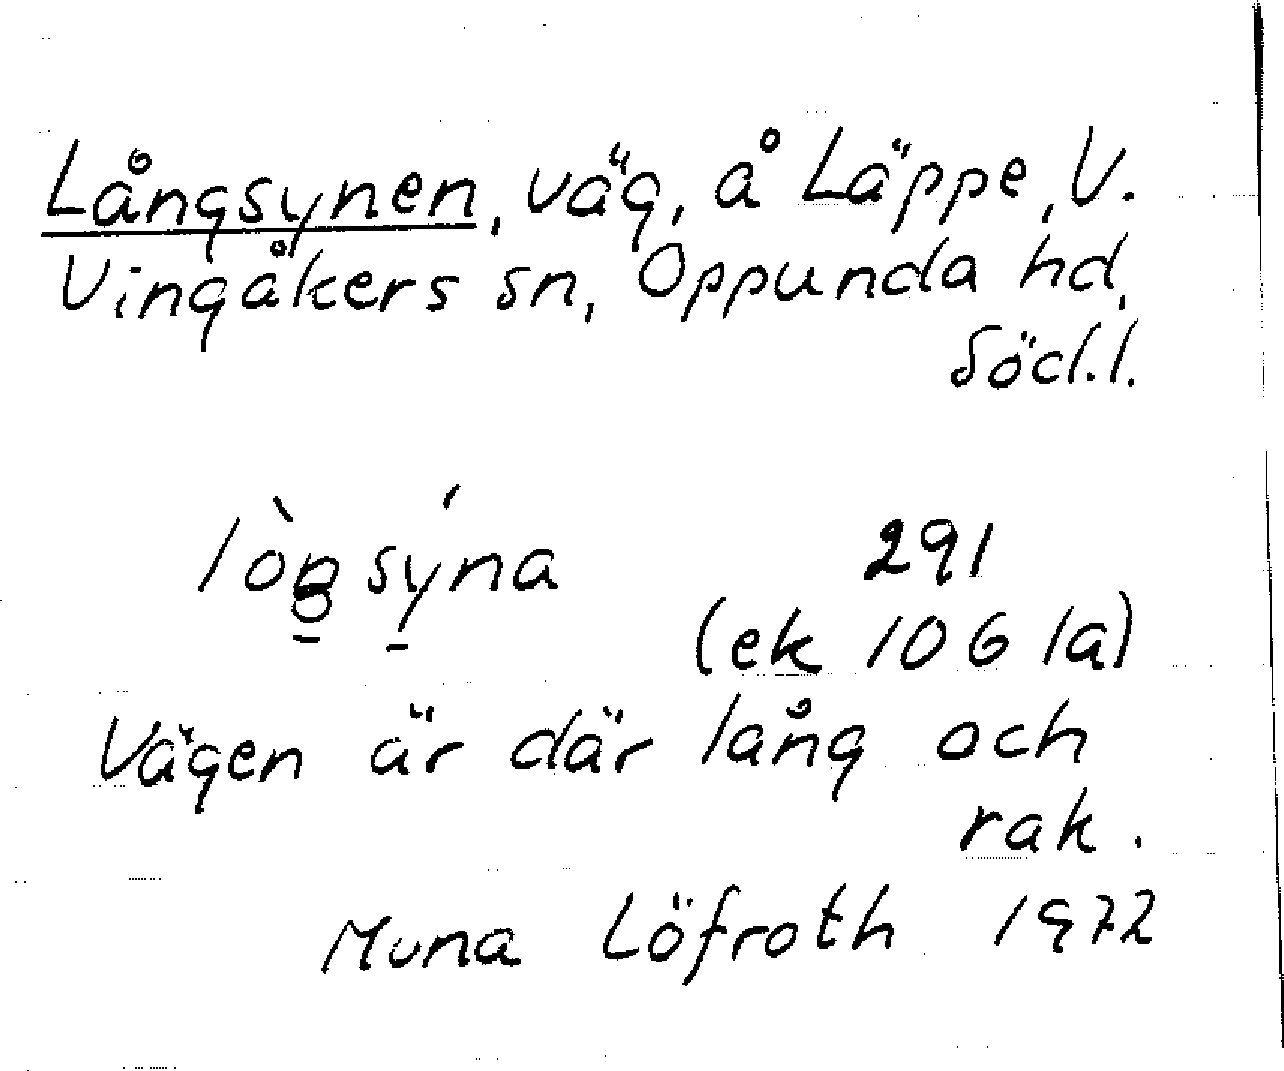 Långsynen, väg, å Läppe, V.
Vingåkers sn, Oppunda hd,
Söd.l.
lòŋsýna
291
(ek 10G 1a)
Vägen är där lång och
rak.
Muna Löfroth 1972